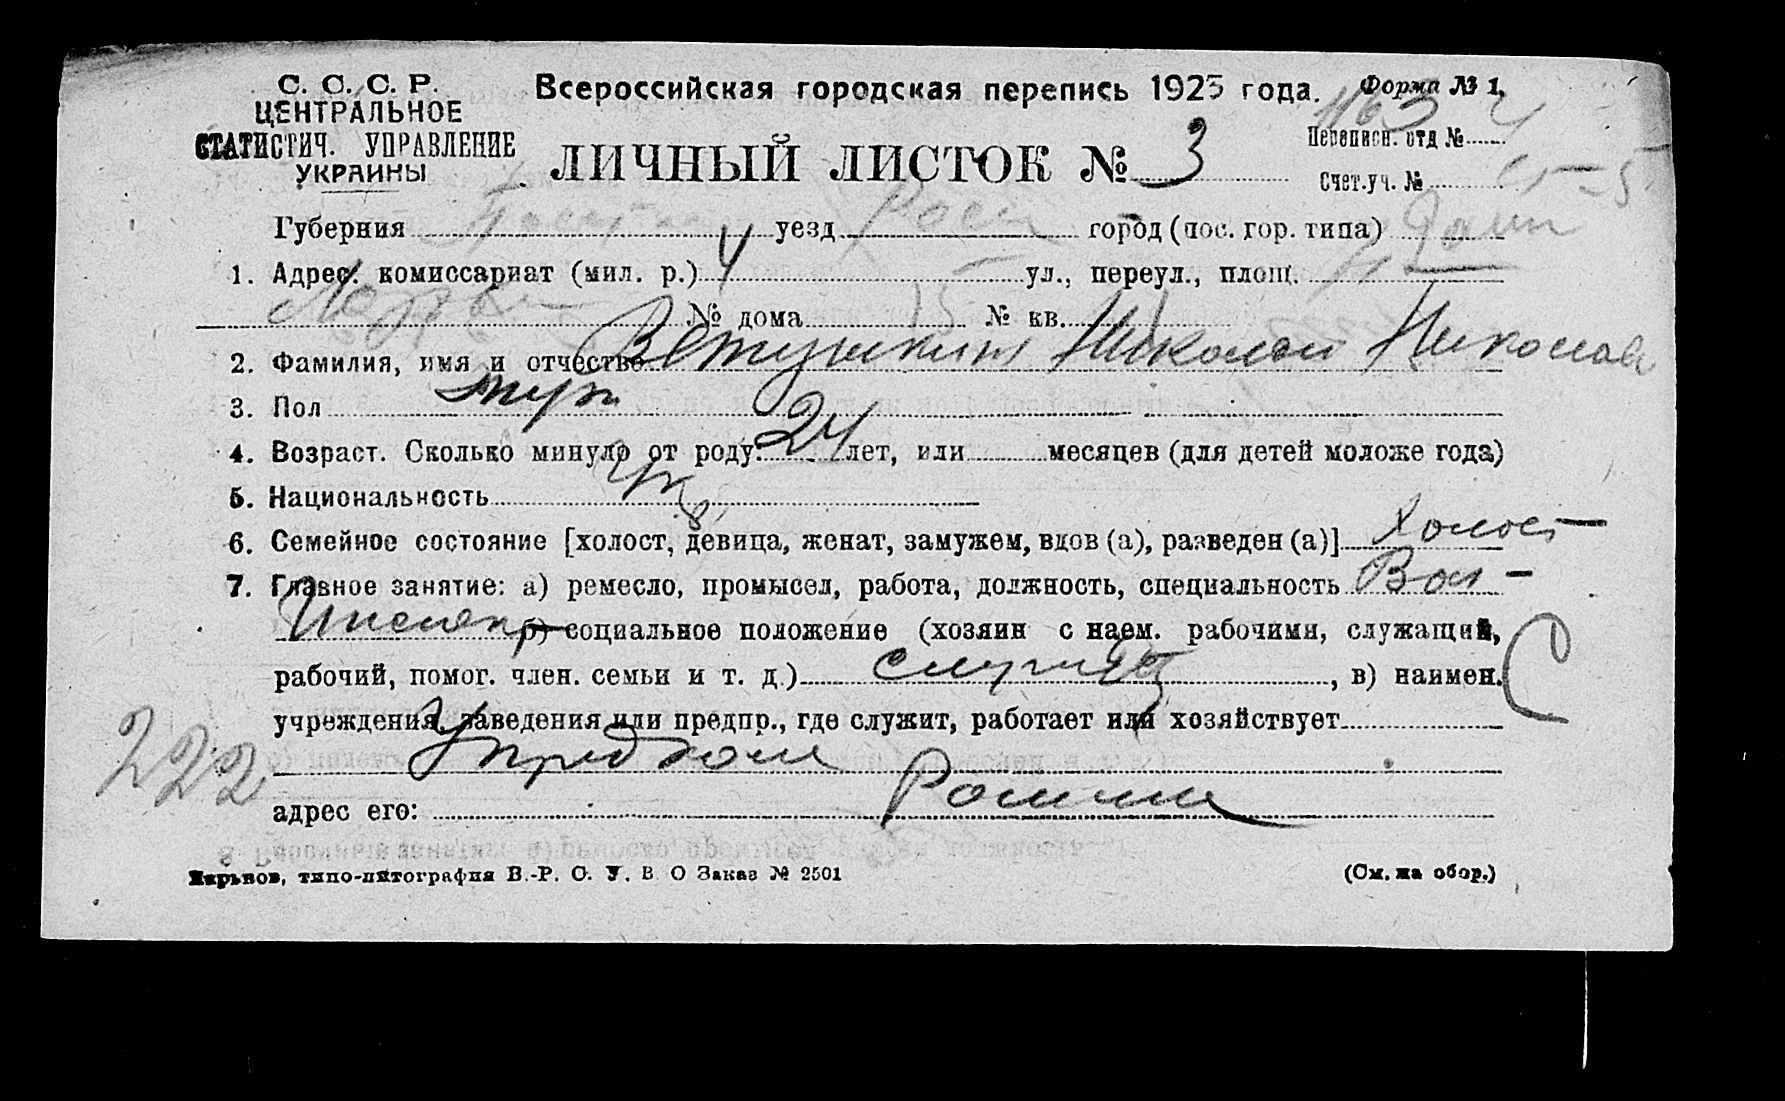 С. С. С. Р.
ЦЕНТРАЛЬНОЕ
СТАТИСТИЧ. УПРАВЛЕНИЕ
УКРАИНЫ
Всероссийская городская перепись 1923 года.
Форма № 1.
ЛИЧНЫЙ ЛИСТОК № 3
Переписн. отд №
Счет.уч. №
Губерния уезд город (пос. гор. типа)
1. Адрес: комиссариат (мил. р.) 4 ул., переул., площ.
№ дома 15 № кв. 1
2. Фамилия, имя и отчество Ветушкин Николай Николаев
3. Пол муж
4. Возраст. Сколько минуло от роду: 24 лет, или месяцев (для детей моложе года)
5. Национальность
6. Семейное состояние [холост, девица, женат, замужем, вдов (а), разведен (а)] Холост
7. Главное занятие: а) ремесло, промысел, работа, должность, специальность
б) социальное положение (хозяин с наем. рабочими, служащий,
рабочий, помог. член. семьи и т. д.) служащ, в) наимен.
учреждения, заведения или предпр., где служит, работает или хозяйствует
адрес его:
222
Харьков, типо-литография В.-Р. С. У. В. О Заказ № 2501
(См. на обор.)